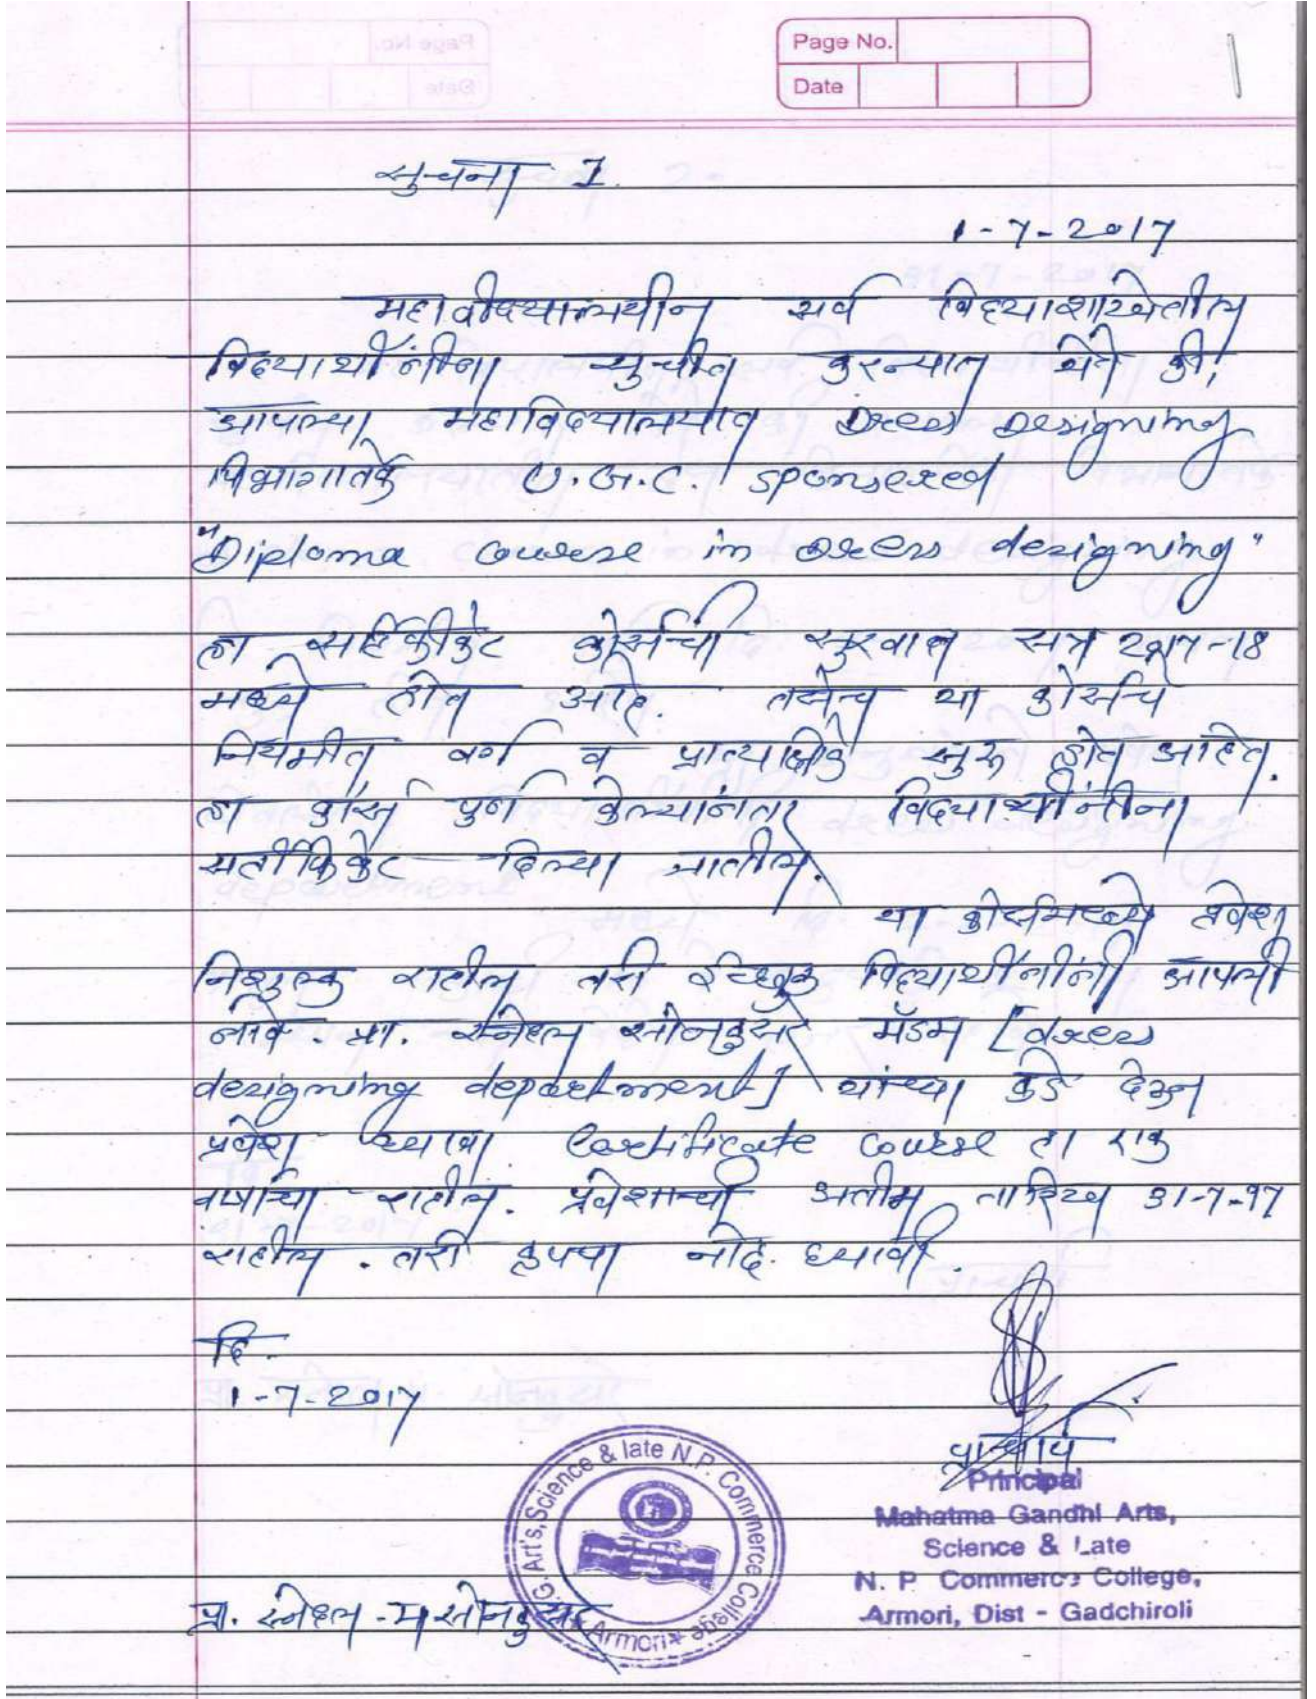 Page No.
Date
सुचना 1.
1-7-2017
महावीद्यालयीन सर्व विद्याशाखेतील
विद्यार्थीनींना सुचीत करन्यात येते की,
आपल्या महाविद्यालयात Dress Designing
विभागातर्फे U.G.C. sponsered
"Diploma course in Dress designing"
हा सर्टिफीकेट कोर्सची सुरवात सत्र 2017-18
मध्ये होत आहे. तसेच या कोर्सचे
नियमीत वर्ग व प्रात्याक्षिके सुरू होत आहेत.
हा कोर्स पुर्ण केल्यांनतर विद्यार्थीनींना
सर्तीफिकेट दिल्या जातील.
या कोर्समध्ये प्रवेश
निशुल्क राहील तरी ईच्छुक विद्यार्थीनींनी आपली
नांवे. प्रा. स्नेहल सोनकुसरे मॅडम [dress
designing department] यांच्या कडे देऊन
प्रवेश घ्यावा. Certificate course हा एक
वर्षाचा राहील. प्रवेशाची अतीम तारिख 31-7-17
राहील. तरी कृपया नोंद घ्यावी.
दि.
1-7-2017
प्राचार्य
Principal
Mahatma Gandhi Arts,
Science & Late
N. P. Commerce College,
Armori, Dist - Gadchiroli
M.G. Art's, Science & late N.P. Commerce College
Armori
प्रा. स्नेहल सोनकुसरे